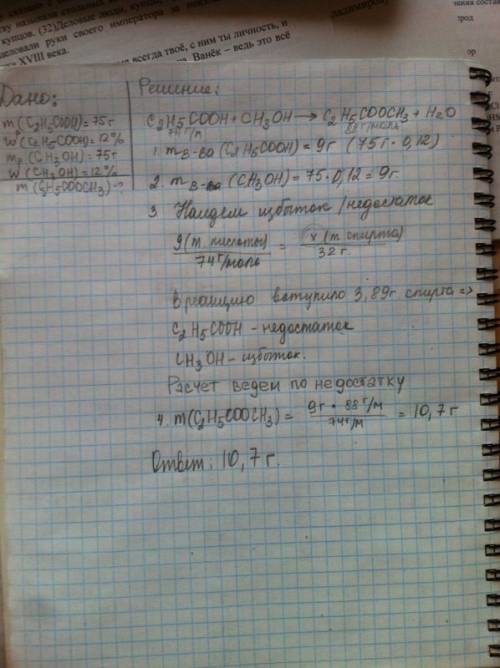 купцов. (32)Деловые люди, купц
словали руки своего императора за
XVIII века.
всегда твоё, с ним ты личность, и
Ванёк – ведь это всё
Дано:
m(C₂H₅COOH)=75г
W(C₂H₅COOH)=12%
mр(CH₃OH)=75г
W(CH₃OH)=12%
m(C₂H₅COOCH₃)-?
Решение:
C₂H₅COOH+CH₃OH→C₂H₅COOCH₃+H₂O
1. mв-ва(C₂H₅COOH)=9г (75г·0,12)
2. mв-ва(CH₃OH)=75·0,12=9г.
3. Найдем избыток/недостаток
9(m кислоты)/74г/моль = x(m спирта)/32г.
В реакцию вступило 3,89г спирта =>
C₂H₅COOH-недостаток
CH₃OH-избыток.
Расчет ведем по недостатку
4. m(C₂H₅COOCH₃)= 9г·88г/м / 74г/м = 10,7г
Ответ: 10,7г.